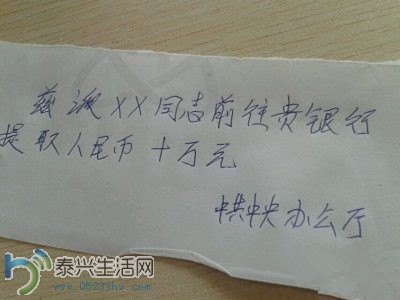 兹派XX同志前往贵银行
提取人民币十万元
中共中央办公厅
泰兴生活网
www.0523shw.com